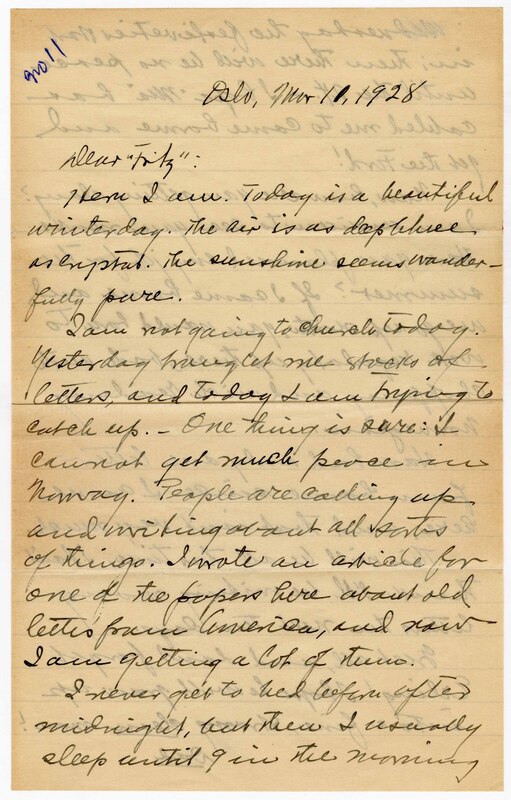 Oslo, Mar 11, 1928
Dear "Fritz":
Here I am. Today is a beautiful
winterday. The air is as deep blue
as crystal. The sunshine seems wonder-
fully pure.
I am not going to church today.
Yesterday brought me stacks of
letters, and today I am trying to
catch up. – One thing is sure: I
cannot get much peace in
Norway. People are calling up
and writing about all sorts
of things. I wrote an article for
one of the papers here about old
letters from America, and now
I am getting a lot of them.
I never get to bed before after
midnight, but then I usually
sleep until 9 in the morning